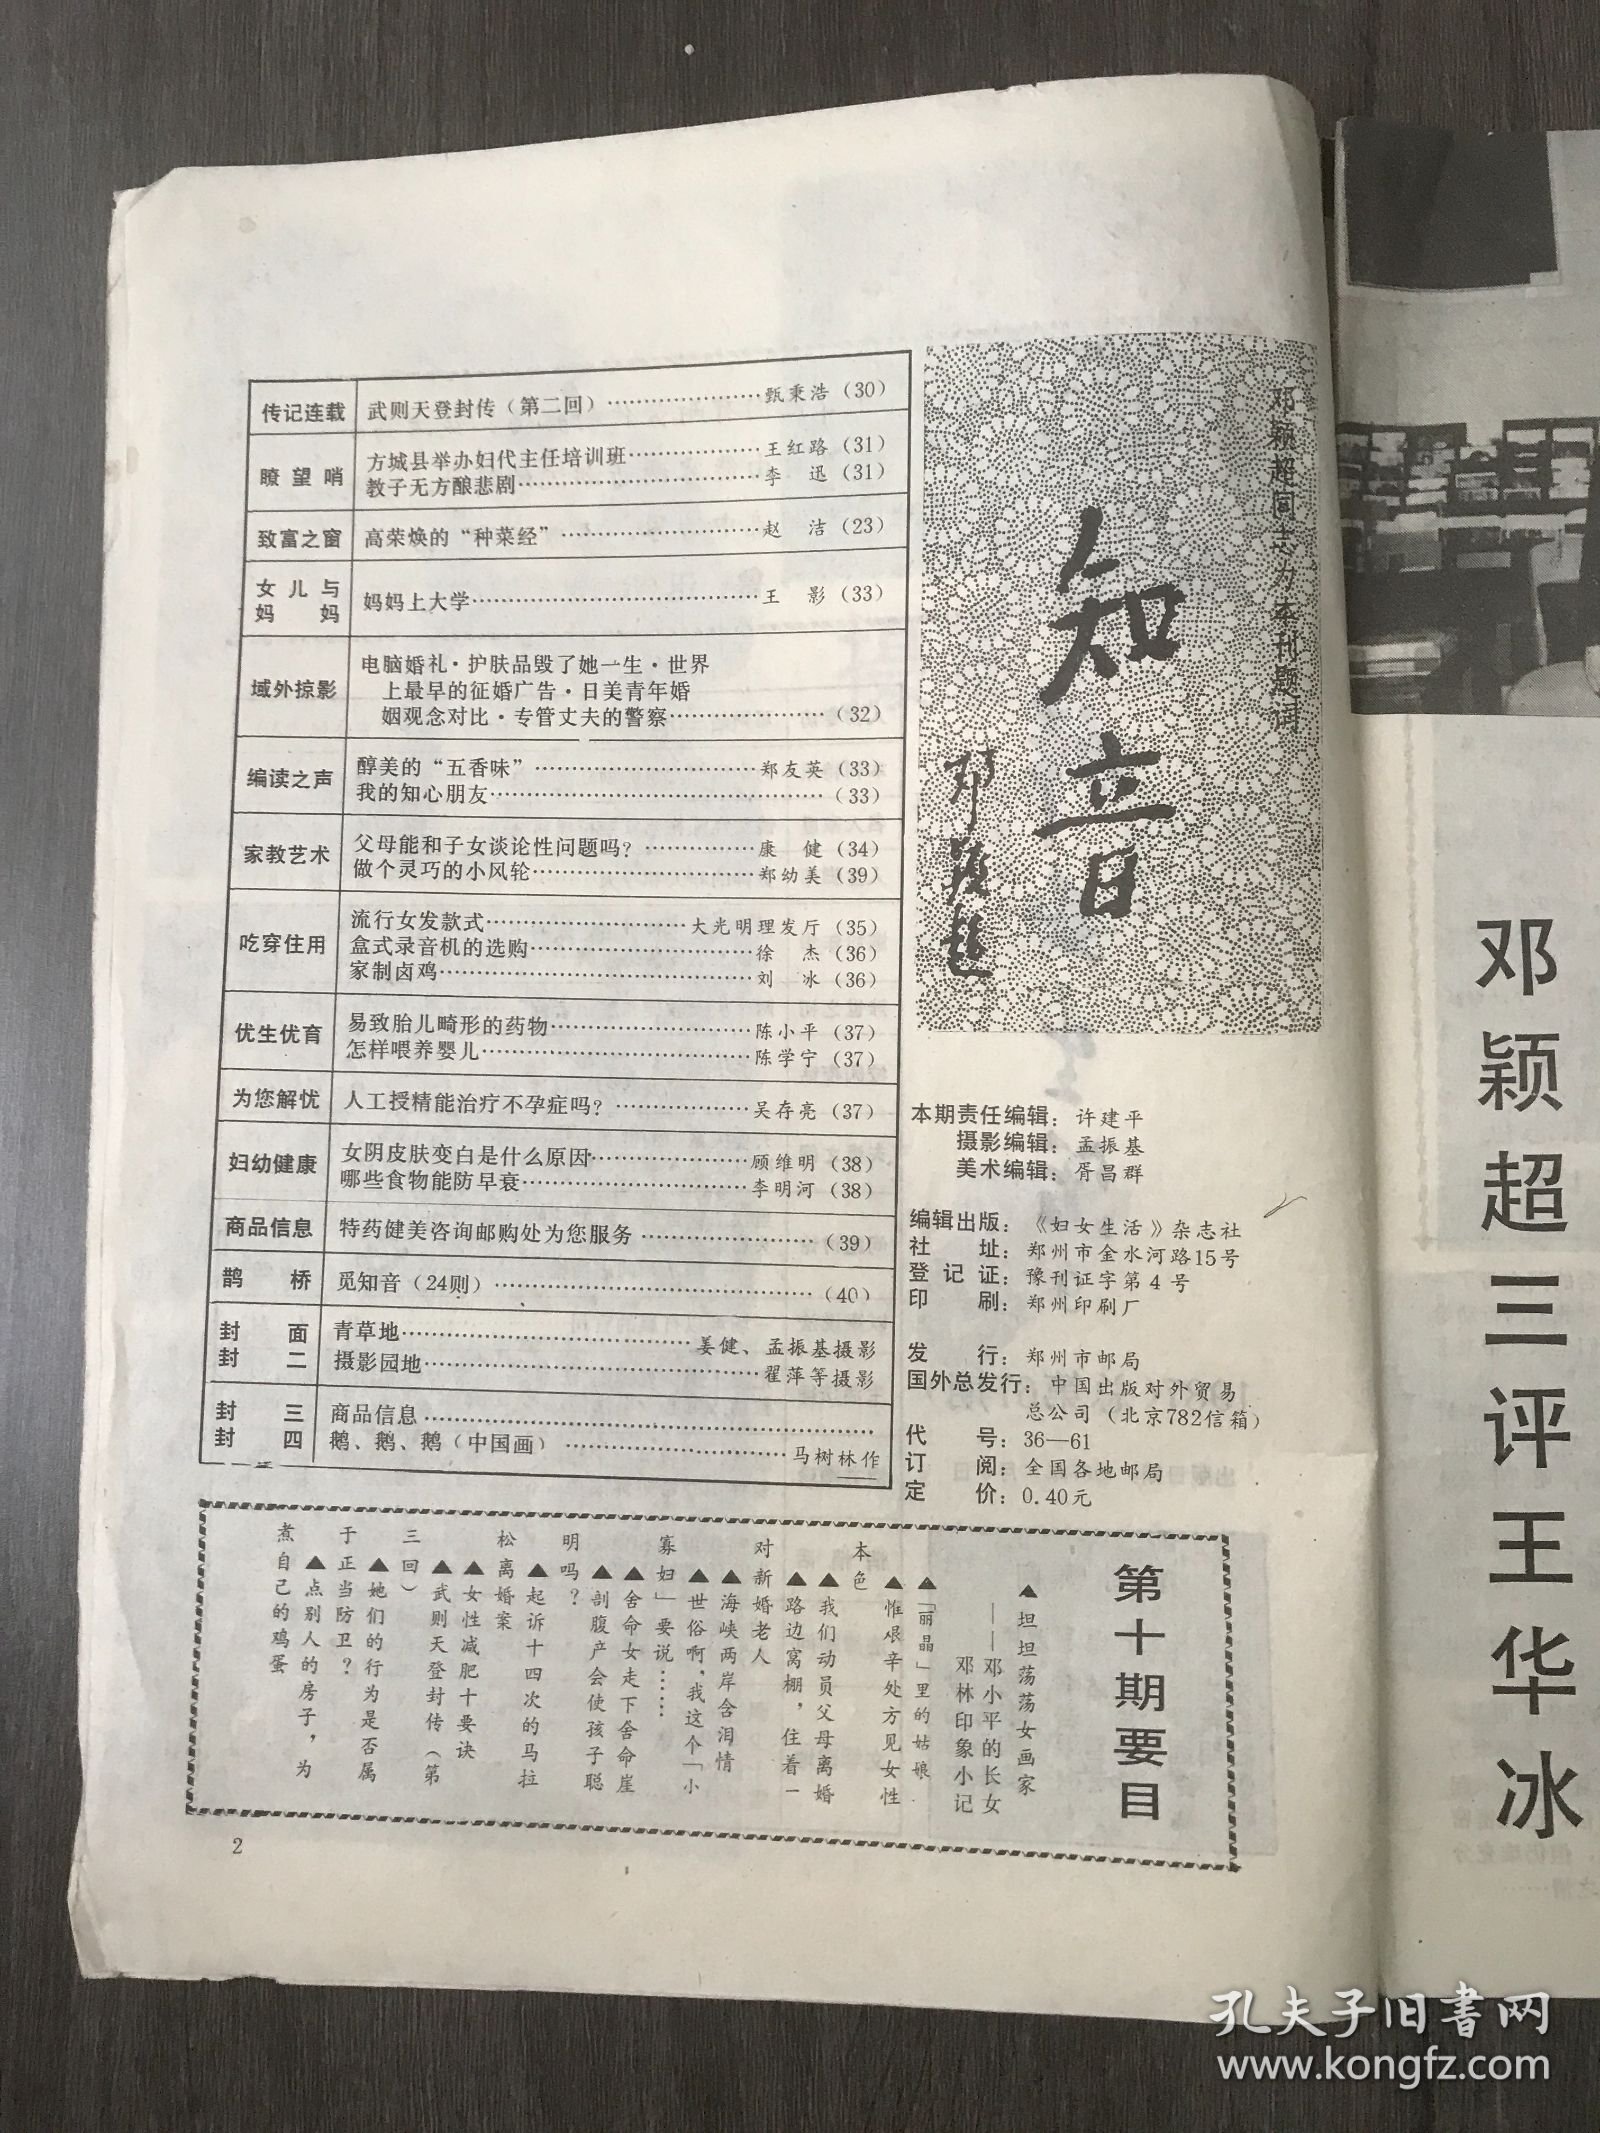 传记连载 武则天登封传（第二回）……………………甄秉浩（30）
瞭望哨 方城县举办妇代主任培训班………………王红路（31）
教子无方酿悲剧………………………………李　迅（31）
致富之窗 高荣焕的“种菜经”…………………………赵　洁（23）
女儿与
妈　妈
妈妈上大学……………………………………王　影（33）
域外掠影
电脑婚礼·护肤品毁了她一生·世界
上最早的征婚广告·日美青年婚
姻观念对比·专管丈夫的警察…………………（32）
编读之声
醇美的“五香味”……………………………郑友英（33）
我的知心朋友………………………………………（33）
家教艺术
父母能和子女谈论性问题吗？……………康　健（34）
做个灵巧的小风轮……………………………郑幼美（39）
吃穿住用
流行女发款式…………………………大光明理发厅（35）
盒式录音机的选购……………………………徐　杰（36）
家制卤鸡………………………………………刘　冰（36）
优生优育
易致胎儿畸形的药物…………………………陈小平（37）
怎样喂养婴儿…………………………………陈学宁（37）
为您解忧 人工授精能治疗不孕症吗？………………吴存亮（37）
妇幼健康
女阴皮肤变白是什么原因……………………顾维明（38）
哪些食物能防早衰……………………………李明河（38）
商品信息 特药健美咨询邮购处为您服务……………………（39）
鹊　桥 觅知音（24则）……………………………………（40）
封　面 青草地……………………………………姜健、孟振基摄影
封　二 摄影园地…………………………………………翟萍等摄影
封　三 商品信息…………………………………………………………
封　四 鹅、鹅、鹅（中国画）……………………………马树林作
邓颖超同志为本刊题词
知音
邓颖超
本期责任编辑：许建平
摄影编辑：孟振基
美术编辑：胥昌群
编辑出版：《妇女生活》杂志社
社　　址：郑州市金水河路15号
登 记 证：豫刊证字第4号
印　　刷：郑州印刷厂
发　　行：郑州市邮局
国外总发行：中国出版对外贸易
总公司（北京782信箱）
代　　号：36—61
订　　阅：全国各地邮局
定　　价：0.40元
第十期要目
▲坦坦荡荡女画家
——邓小平的长女
邓林印象小记
▲「丽晶」里的姑娘
▲惟艰辛处方见女性
本色
▲我们动员父母离婚
▲路边窝棚，住着一
对新婚老人
▲海峡两岸含泪情
▲世俗啊，我这个「小
寡妇」要说……
▲舍命女走下舍命崖
▲剖腹产会使孩子聪
明吗？
▲起诉十四次的马拉
松离婚案
▲女性减肥十要诀
▲武则天登封传（第
三回）
▲她们的行为是否属
于正当防卫？
▲点别人的房子，为
煮自己的鸡蛋
2
邓颖超三评王华冰
孔夫子旧书网
www.kongfz.com